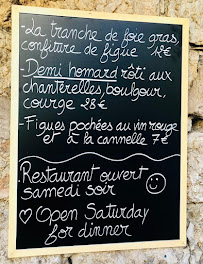 -La tranche de foie gras,
confiture de figue 12€
-Demi homard rôti aux
chanterelles, boulgour,
courge 28€
-Figues pochées au vin rouge
et à la cannelle 7€
.Restaurant ouvert
samedi soir
♡ Open Saturday
for dinner